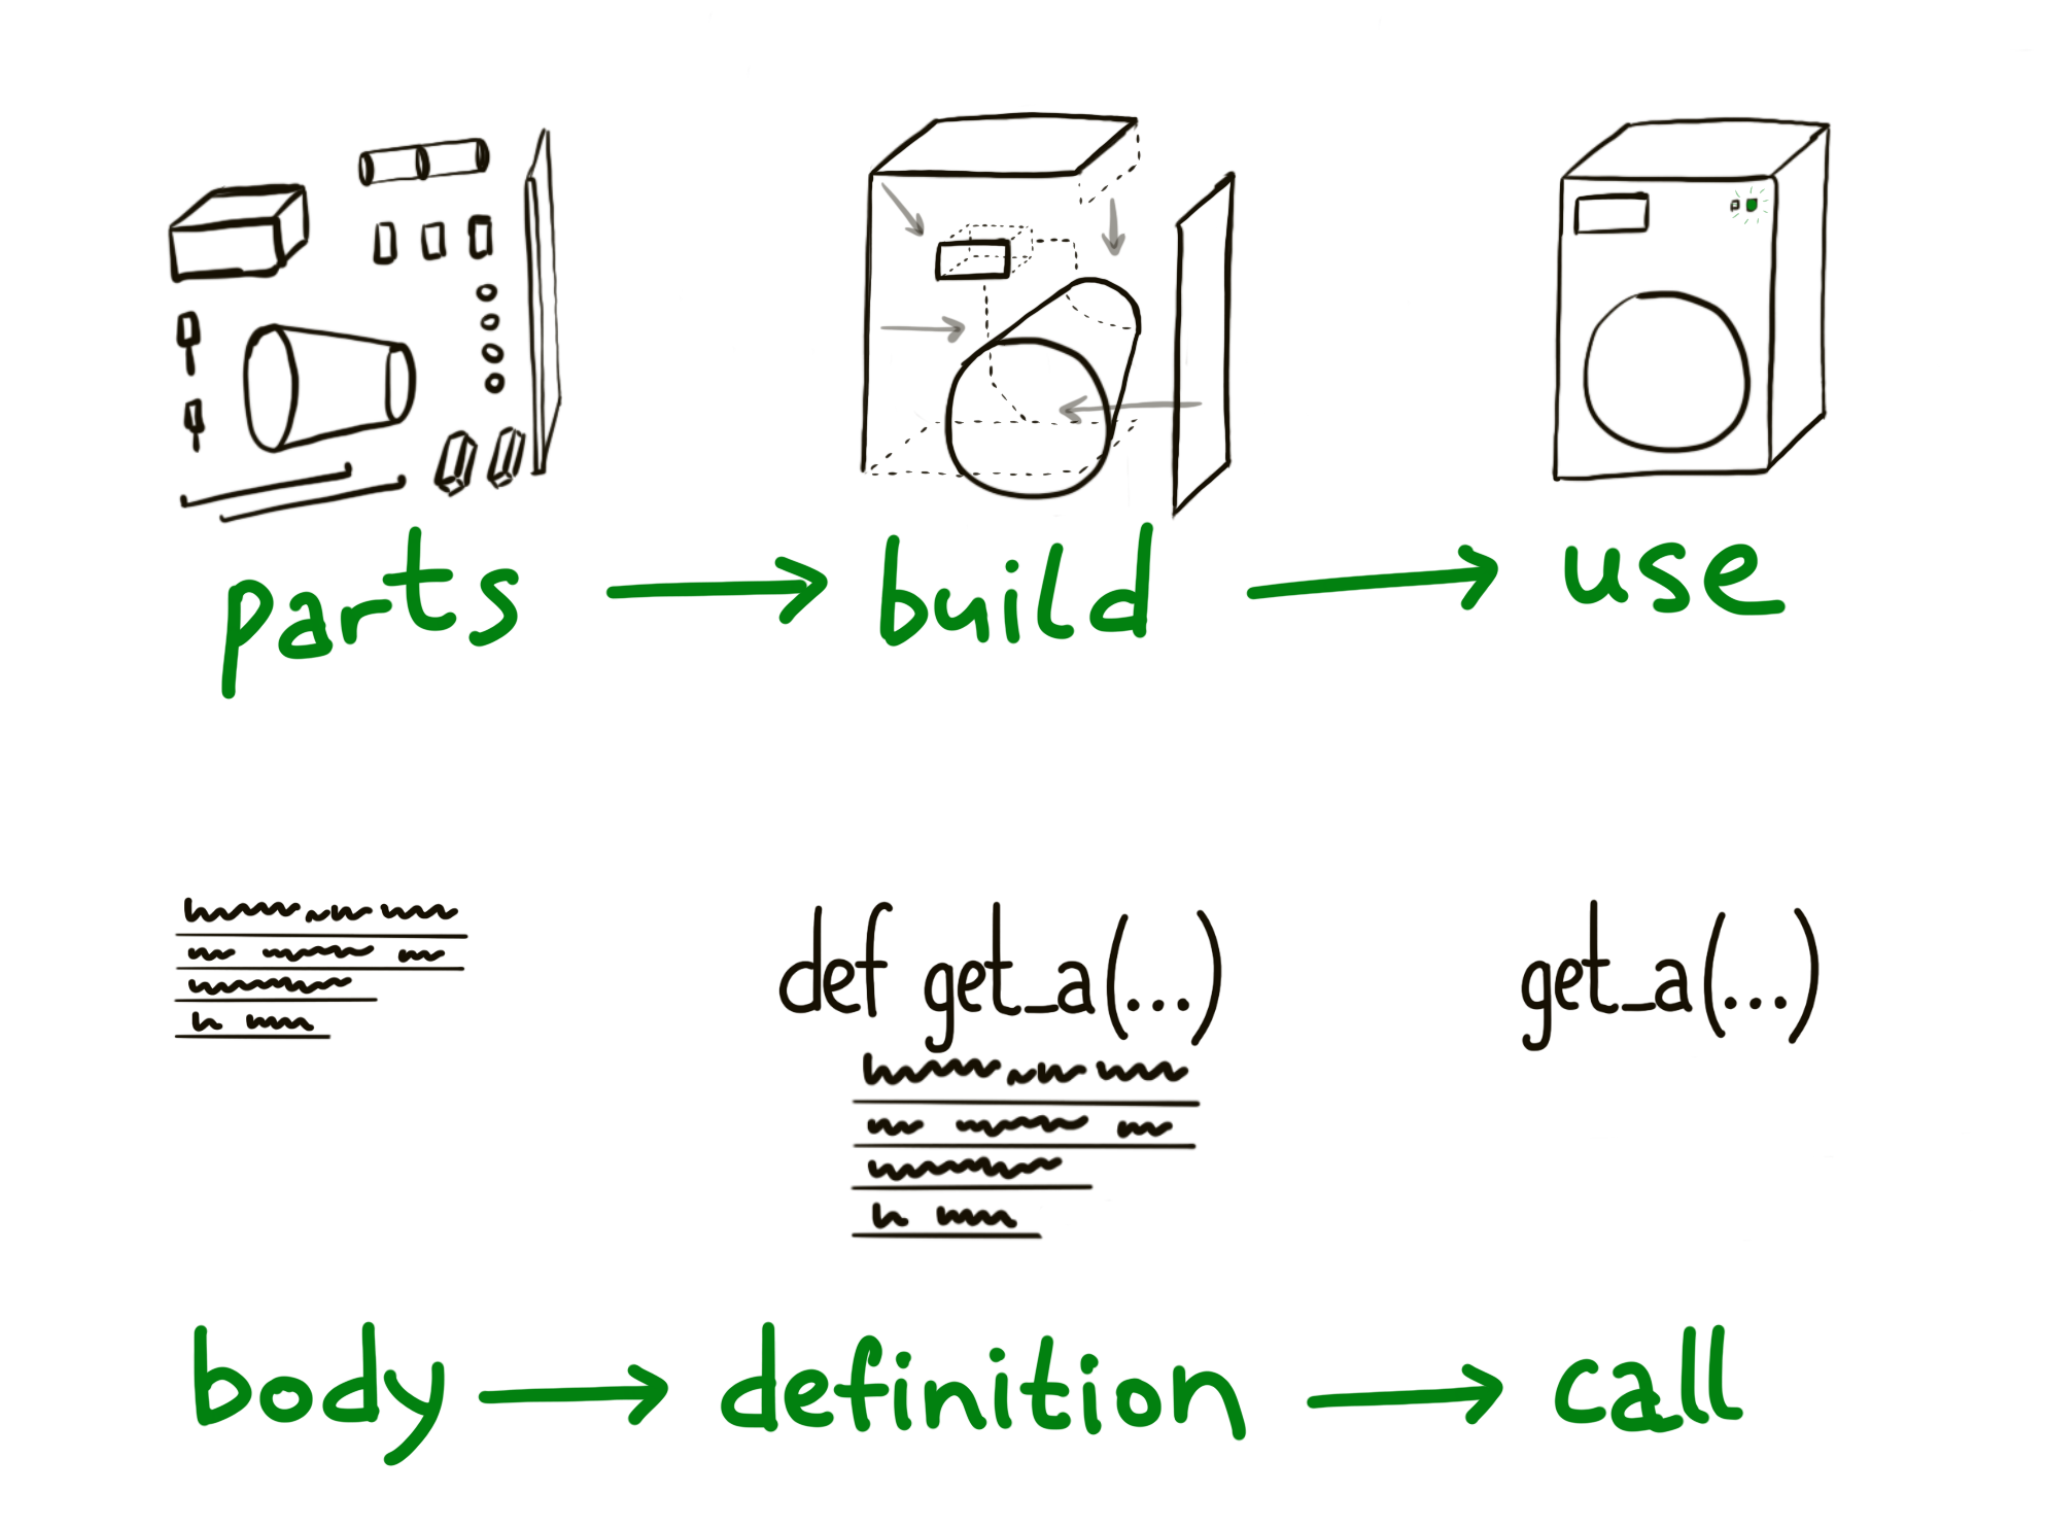 parts → build → use
def get_a(...)
get_a(...)
body → definition → call